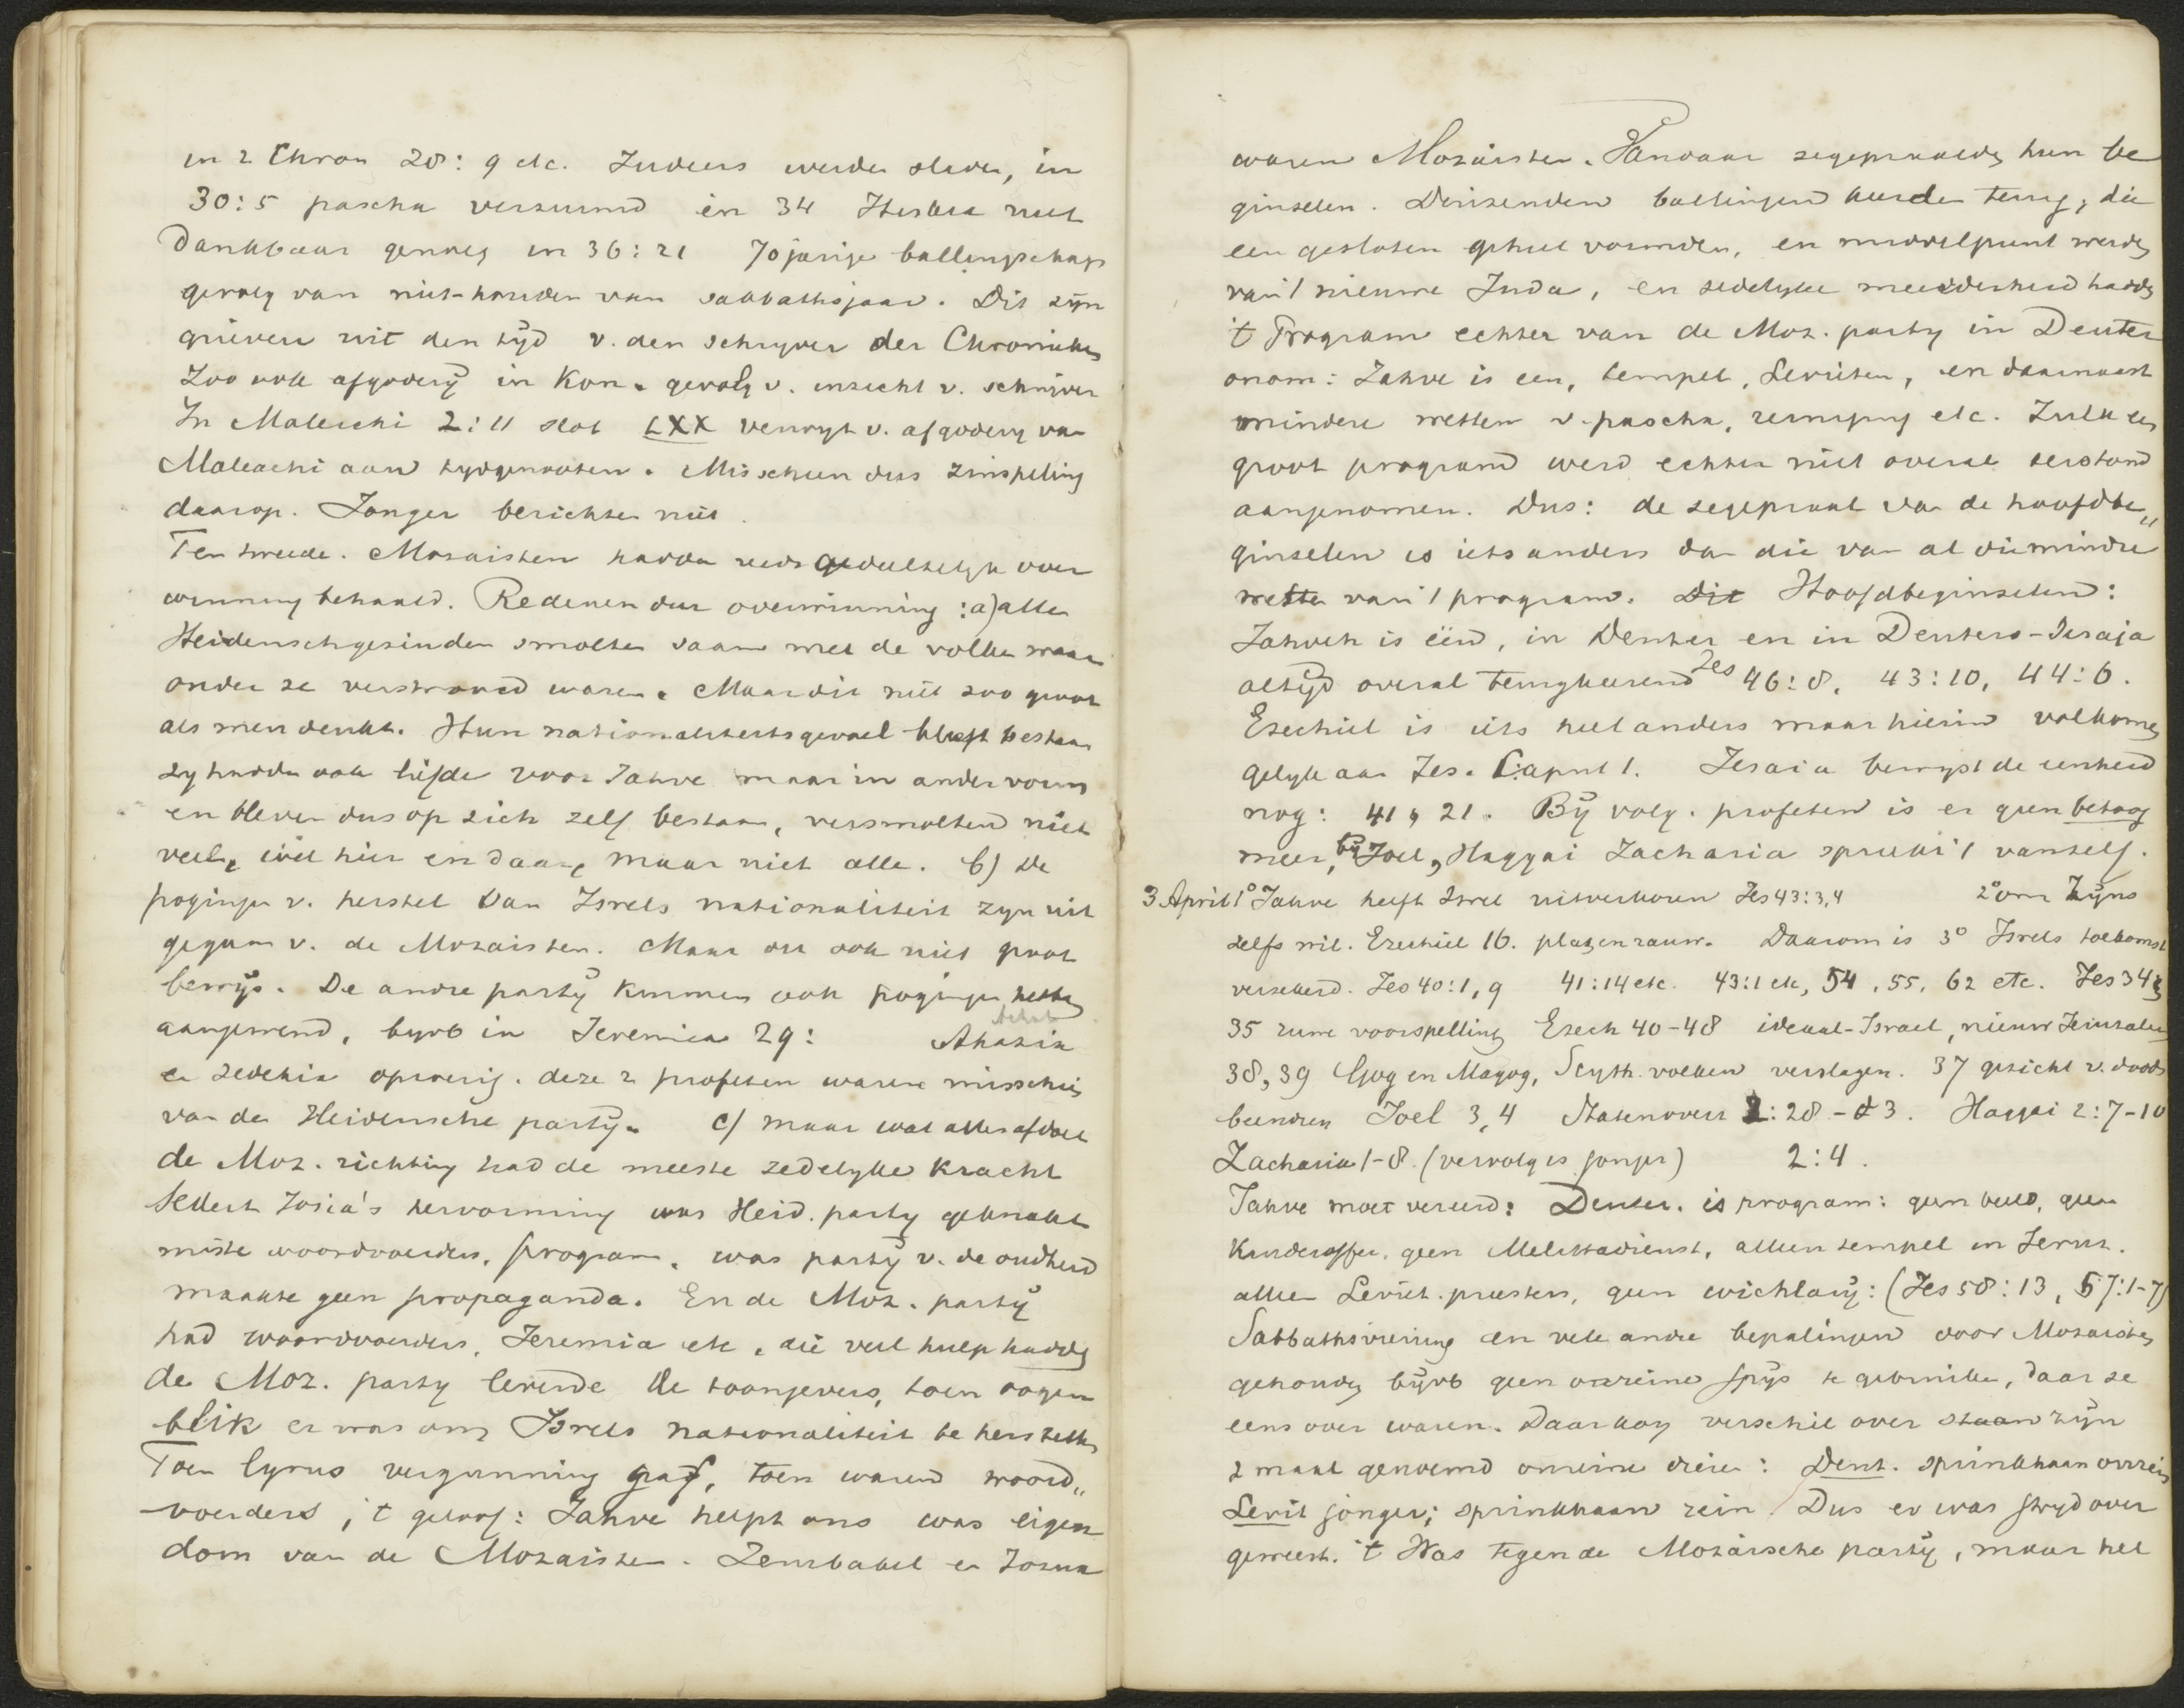 in 2 Chron 28: 9 etc. Judeers werden slaven, in
30:5 pascha verzuimd en 34 Hiskia niet
dankbaar genoeg in 36:21 70 jarige ballingschap
gevolg van niet-houden van sabbathsjaar. Dit zijn
grieven uit den tijd v. den schryver der Chronieken
Zoo ook afgoderij in Kon. gevolg v. inzicht v. schrijver
In Maleachi 2:11 slot LXX verwyt v. afgodery van
Maleachi aan tydgenooten. Misschien dus zinspeling
daarop. Jonger berichten niet.
Ten tweede. Mozaisten hadden reeds gedeeltelyk over
winning behaald. Redenen dier overwinning: a) alle
Heidenschgezinden smolten saam met de volken waar
onder ze verstrooid waren. Maar dit niet zoo groot
als men denkt. Hun nationaliteitsgevoel bleeft bestaan
zy hadden ook liefde voor Jahve maar in ander vorm
en bleven dus op zich zelf bestaan, versmolten niet
veel, wel hier en daar, maar niet alle. b) De
pogingen v. herstel van Isrels nationaliteit zyn uit
gegaan v. de Mozaisten. Maar dit ook niet groot
bewijs. De andre partij kunnen ook pogingen hebben
aangewend, byvb in Jeremia 29: Achab Ahazia
en Zedekia oproerig. deze 2 profeten waren misschien
van de Heidensche partij. c) maar wat alles afdoet
de Moz. richting had de meeste zedelyke kracht
sedert Josia's hervorming was Heid. party geknakt
miste woordvoerders, program, was partij v. de oudheid
maakte geen propaganda. En de Moz. partij
had woordvoerders, Jeremia etc, die veel hulp hadden
de Moz. party leverde de toongevers, toen oogen
blik er was om Isrels nationaliteit te herstellen
Toen Cyrus vergunning gaf, toen waren woord„
voerders, 't geloof: Jahve helpt ons was eigen
dom van de Mozaisten. Zerubabel en Jozua
waren Mozaisten. Vandaar zegepraalden hun be
ginselen. Duizenden ballingen keerden terug, die
een gesloten geheel vormden, en middelpunt werden
van 't nieuwe Juda, en zedelyke meerderheid hadden
't Program echter van de Moz. party in Deuter
onom: Jahve is een, tempel, Levieten, en daarnaast
mindere wetten v. pascha, reiniging etc. Zulk een
groot program werd echter niet overal terstond
aangenomen. Dus: de zegepraal van de hoofdbe„
ginselen is iets anders dan die van al die mindre
wetten van 't program. Dit Hoofdbeginselen:
Jahveh is één, in Deuter en in Deutero-Jesaja
altijd overal terugkeerend Jes 46:8, 43:10, 44:6.
Ezechiel is iets heel anders maar hierin volkomen
gelyk aan Jes. Caput 1. Jesaia bewyst de eenheid
nog: 41, 21. Bij volg. profeten is er geen betoog
meer, bij Joel, Haggai Zacharia spreekt 't vanself.
3 April 1° Jahve heeft Isrel uitverkoren Jes 43:3,4 2° om Zijns
zelfs wil. Ezechiel 16. Daarom is 3° Isrels toekomst
verzekerd. Jes 40:1,9 41:14 etc. 43:1 etc, 54, 55, 62 etc. Jes 34,
35 ruwe voorspelling Ezech 40-48 ideaal-Israel, nieuw Jeruzalem
38, 39 Gog en Magog, Scyth. volken verslagen. 37 gezicht v. doods
beendren Joel 3, 4 Statenvert 2:28 - 3. Haggai 2:7-10
Zacharia 1-8 (vervolg is jonger) 2:4.
Jahve moet vereerd: Deuter. is program: geen beeld, geen
Kinderoffer, geen Melechadienst, alleen tempel in Jeruz.
alleen Leviet. priesters, geen wichlarij: (Jes 58:13, 57:1-7)
Sabbathsviering en vele andre bepalingen door Mozaisten
gehouden bijvb geen onreine spijs te gebruiken, daar ze
eens over waren. Daar nog verschil over staan zijn
2 maal genoemd onreine dieren: Deut. sprinkhaan onrein
Levit jonger; sprinkhaan rein / Dus er was stryd over
geweest. 't Was tegen de Mozaische partij, maar het